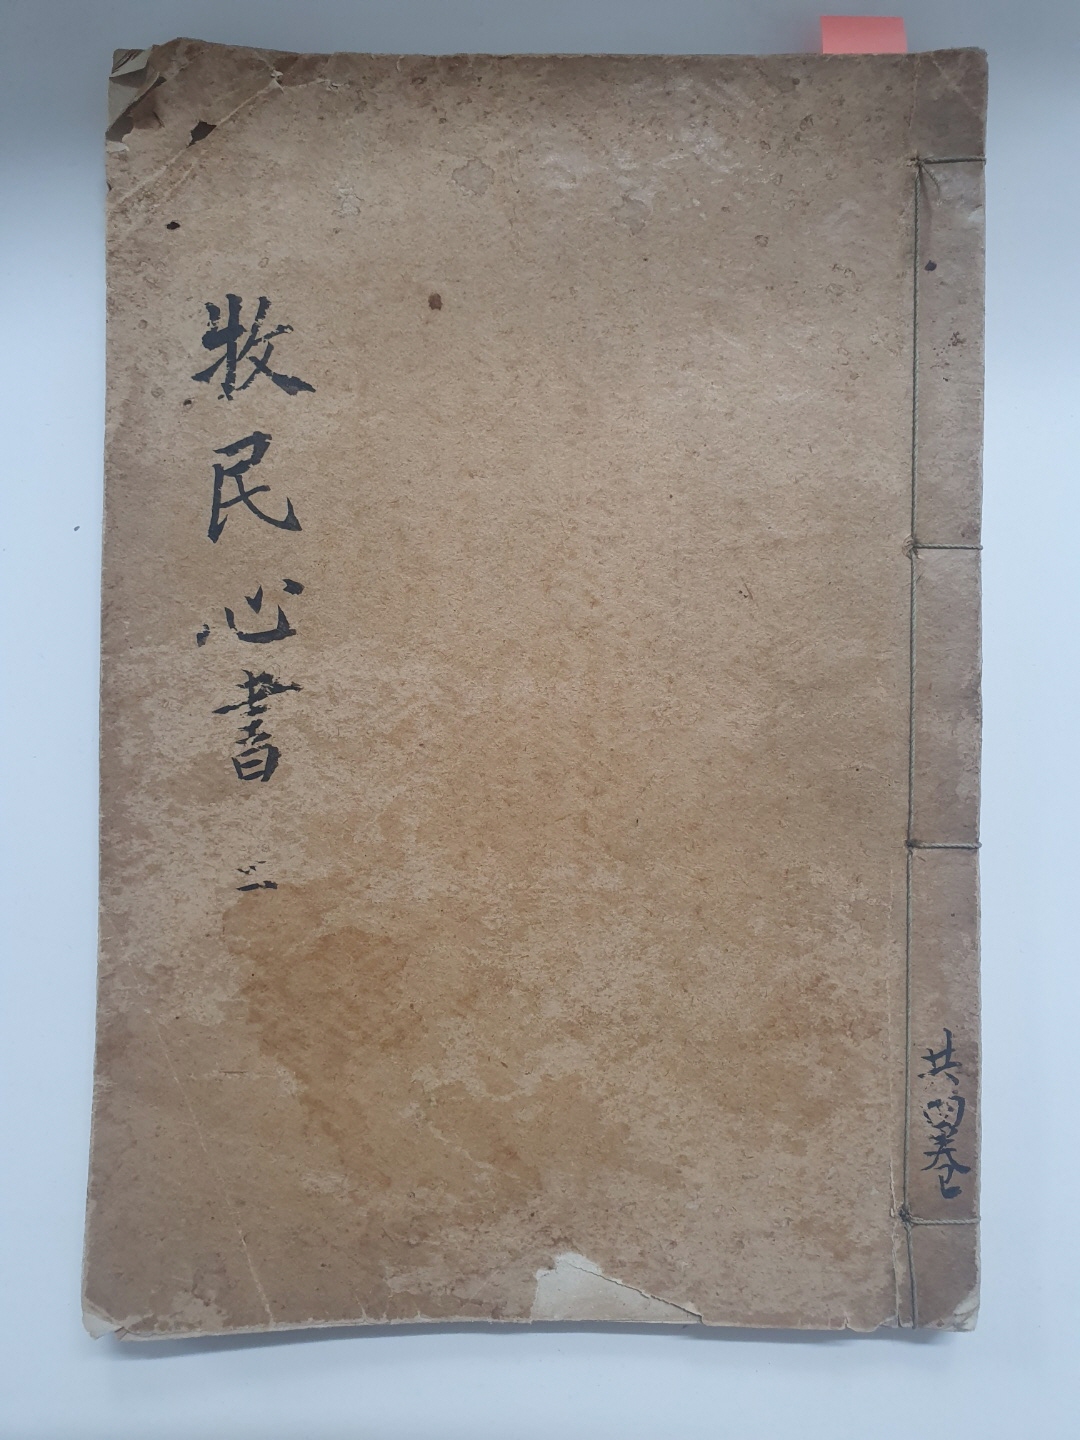 牧民心書 三
共四卷